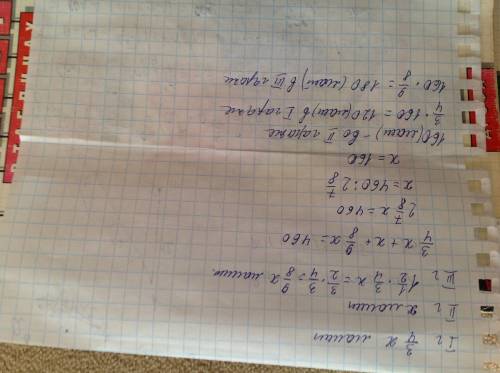 I г 3/4 x машин
II г x машин
III г 1 1/2 · 3/4 x = 3/2 · 3/4 = 9/8 x машин.
3/4 x + x + 9/8 x = 460
2 7/8 x = 460
x = 460 : 2 7/8
x = 160
160 (маш) - во II гараже
3/4 · 160 = 120 (маш) в I гараже
160 · 9/8 = 180 (маш) в III гараже